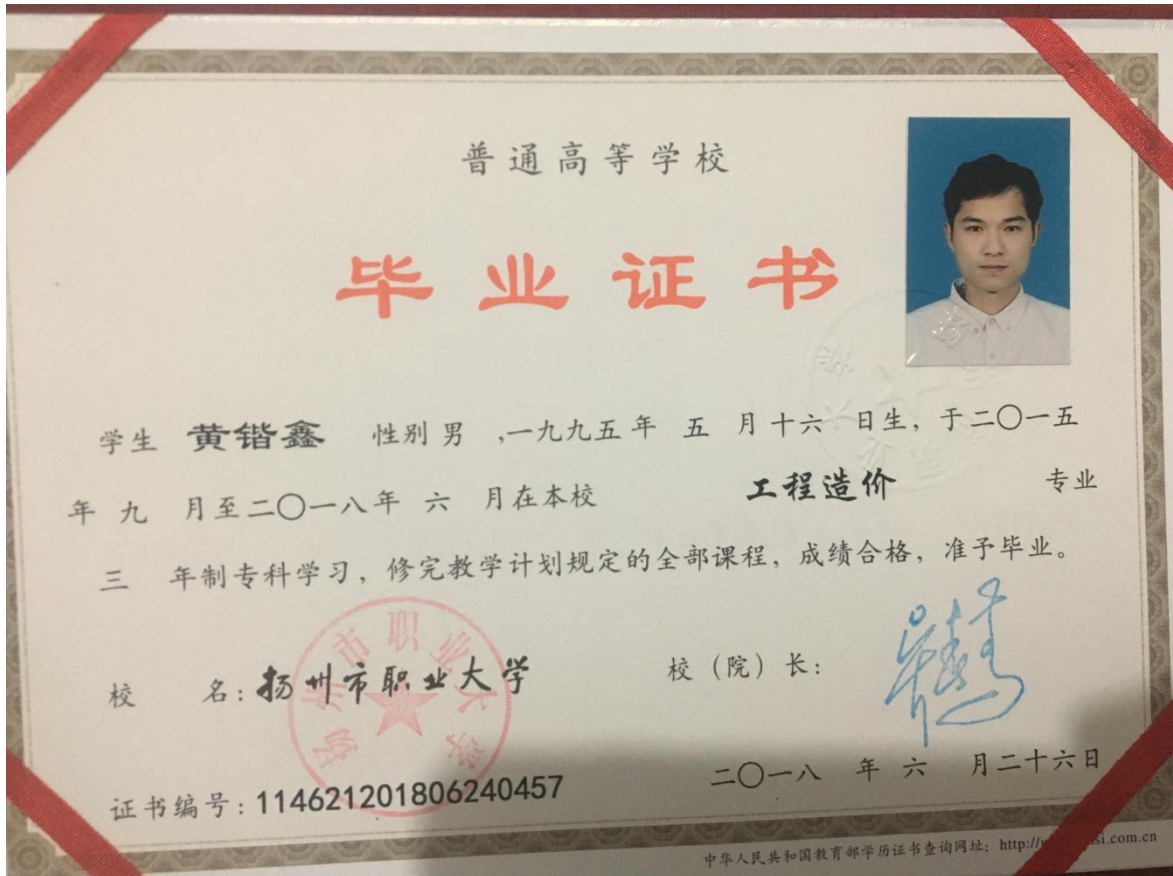 普通高等学校
毕业证书
学生 黄锴鑫 性别 男 ,一九九五年 五 月十六 日生，于二〇一五
年 九 月至二〇一八年 六 月在本校 工程造价 专业
三 年制专科学习，修完教学计划规定的全部课程，成绩合格，准予毕业。
扬州市职业大学
校 名：扬州市职业大学 校（院）长：
二〇一八 年 六 月二十六日
证书编号：114621201806240457
中华人民共和国教育部学历证书查询网址：http://
si.com.cn